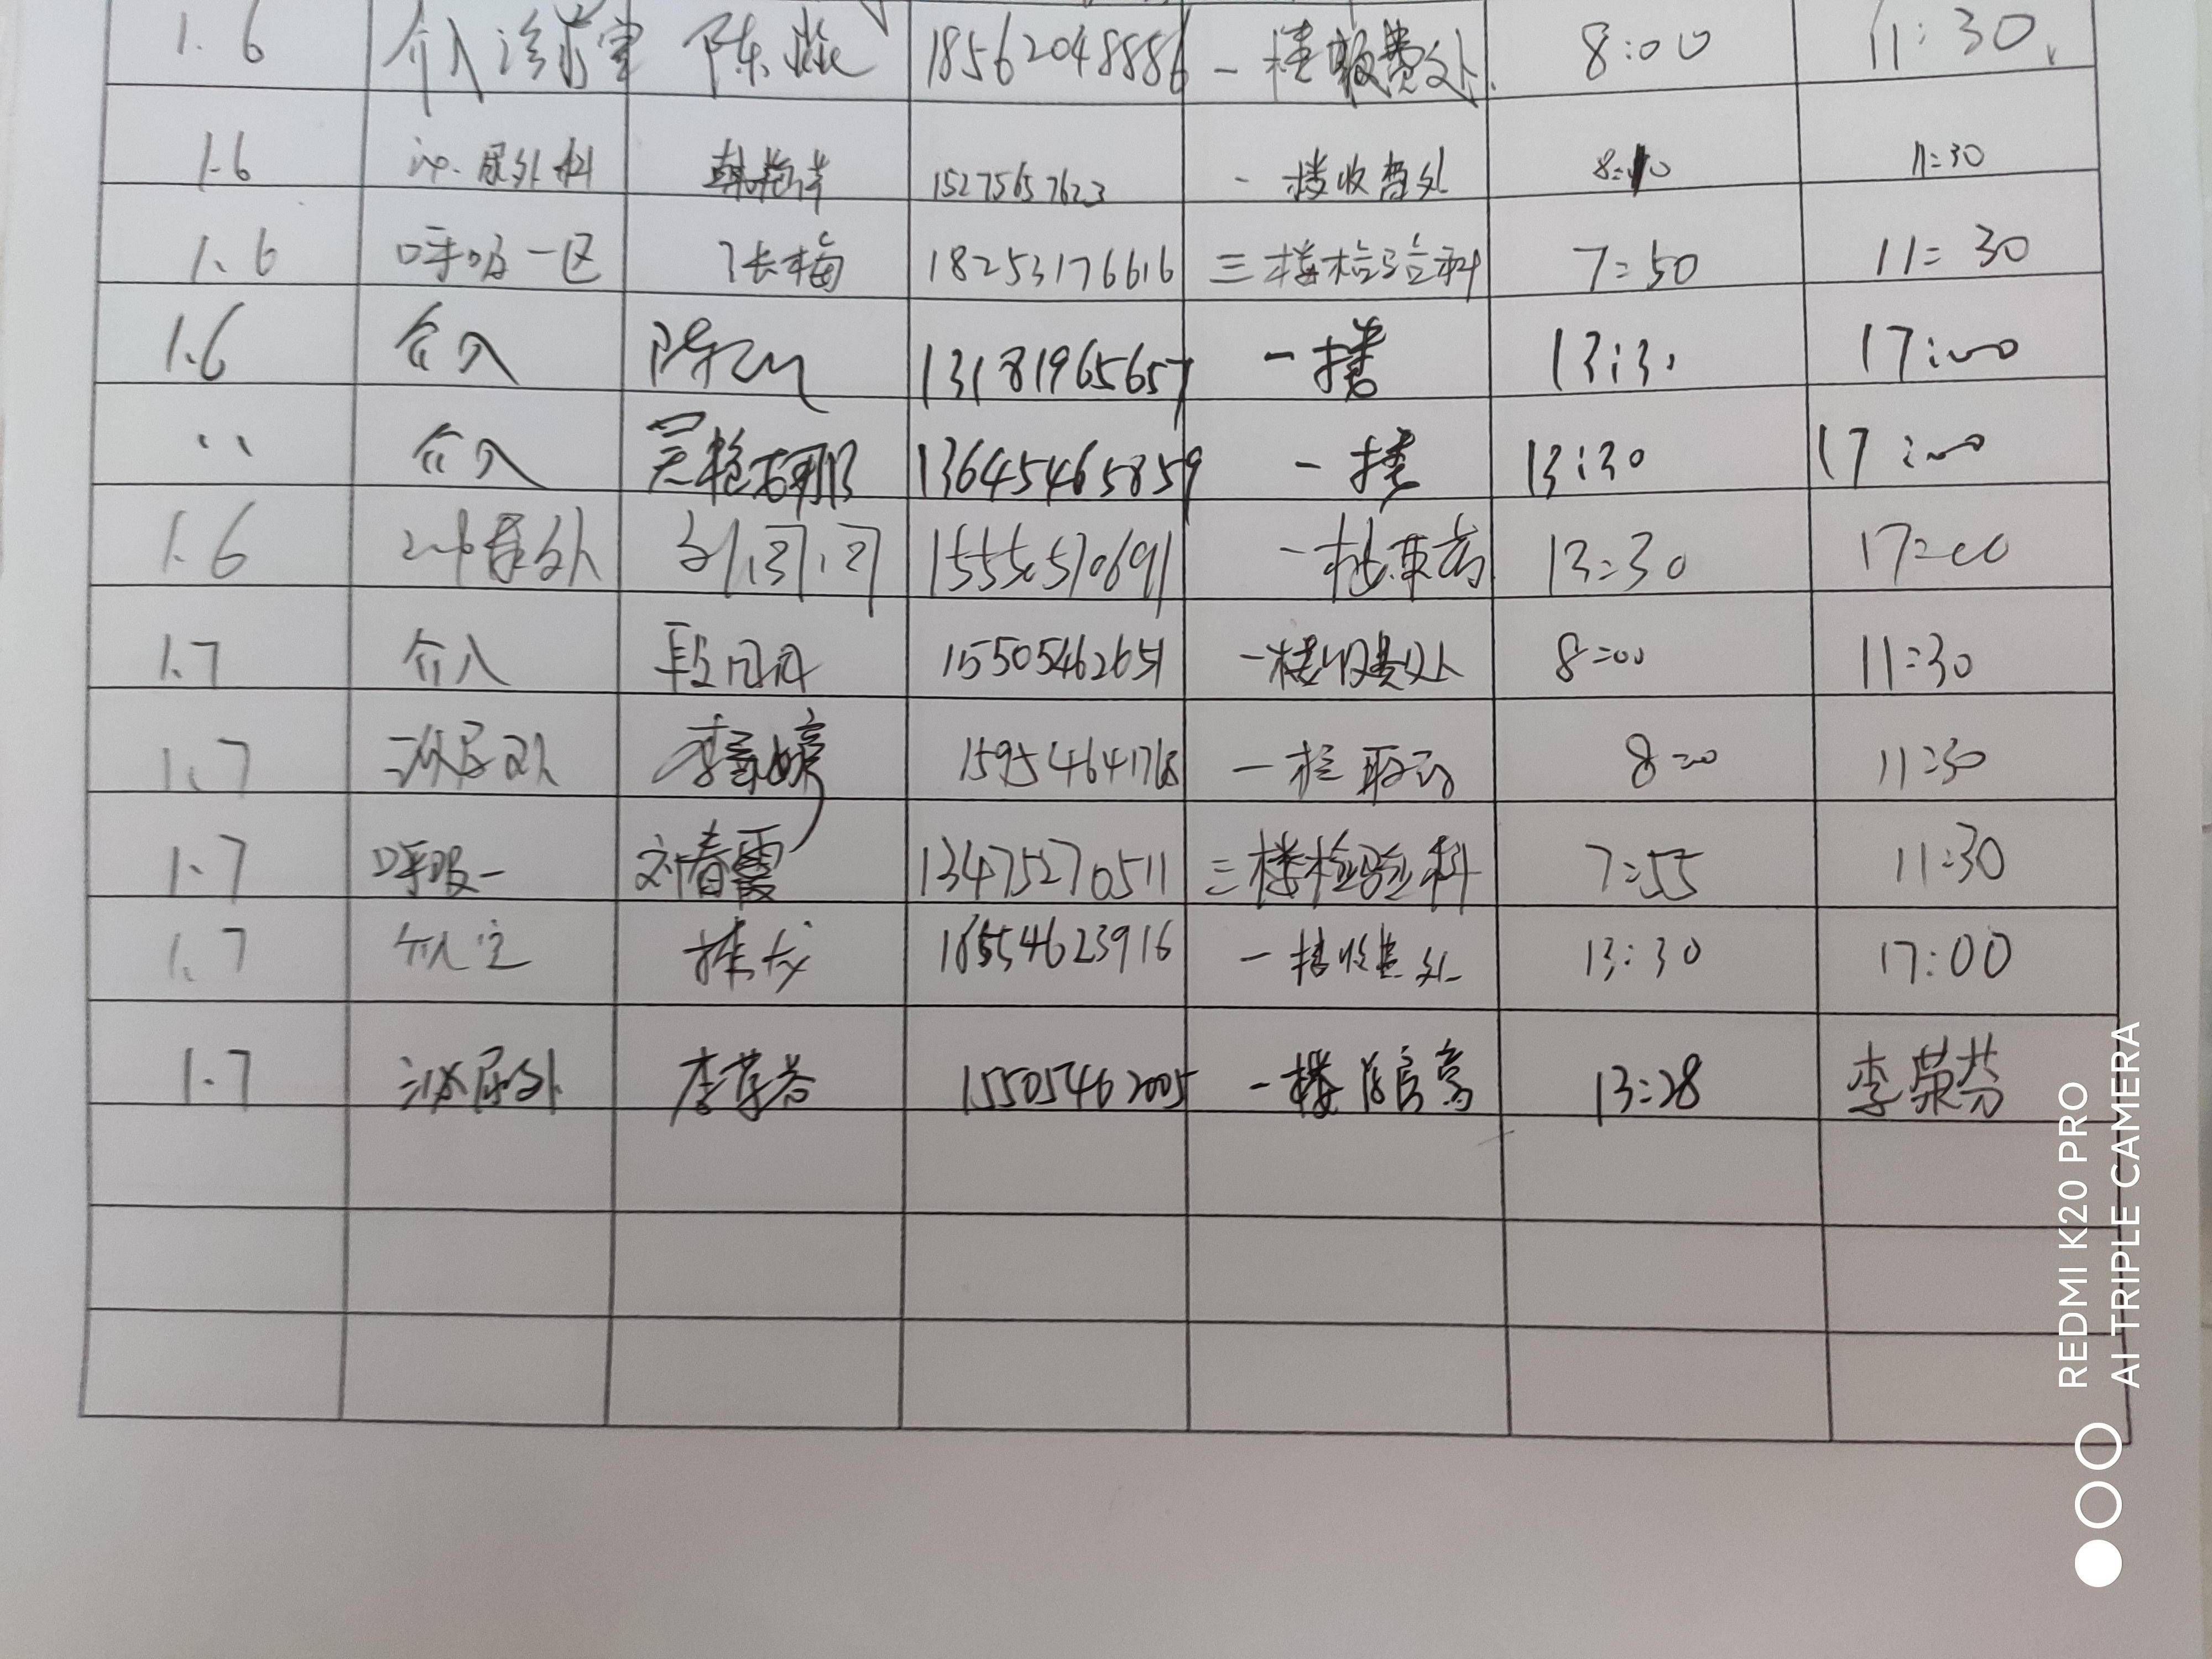 1.6 介入诊疗室 陈 18562048886 一楼缴费处 8:00 11:30
1.6 泌尿外科 韩 15275657623 一楼收费处 11:30
1.6 呼吸一区 张梅 18253176616 三楼检验科 7:50 11:30
1.6 介入 陈 13181965657 一楼 13:30 17:00
〃 介入 吴艳娜 13645465859 一楼 13:30 17:00
1.6 泌尿外 刘 一楼 13:30 17:00
1.7 介入 段 15505462651 一楼收费处 8:00 11:30
1.7 泌尿外 李 一楼取药 8:00 11:30
1.7 呼吸一 刘春霞 13475270511 三楼检验科 7:55 11:30
1.7 介入室 18554623916 一楼收费处 13:30 17:00
1.7 泌尿外 李荣芬 15505462005 一楼 13:28 李荣芬
REDMI K20 PRO
AI TRIPLE CAMERA